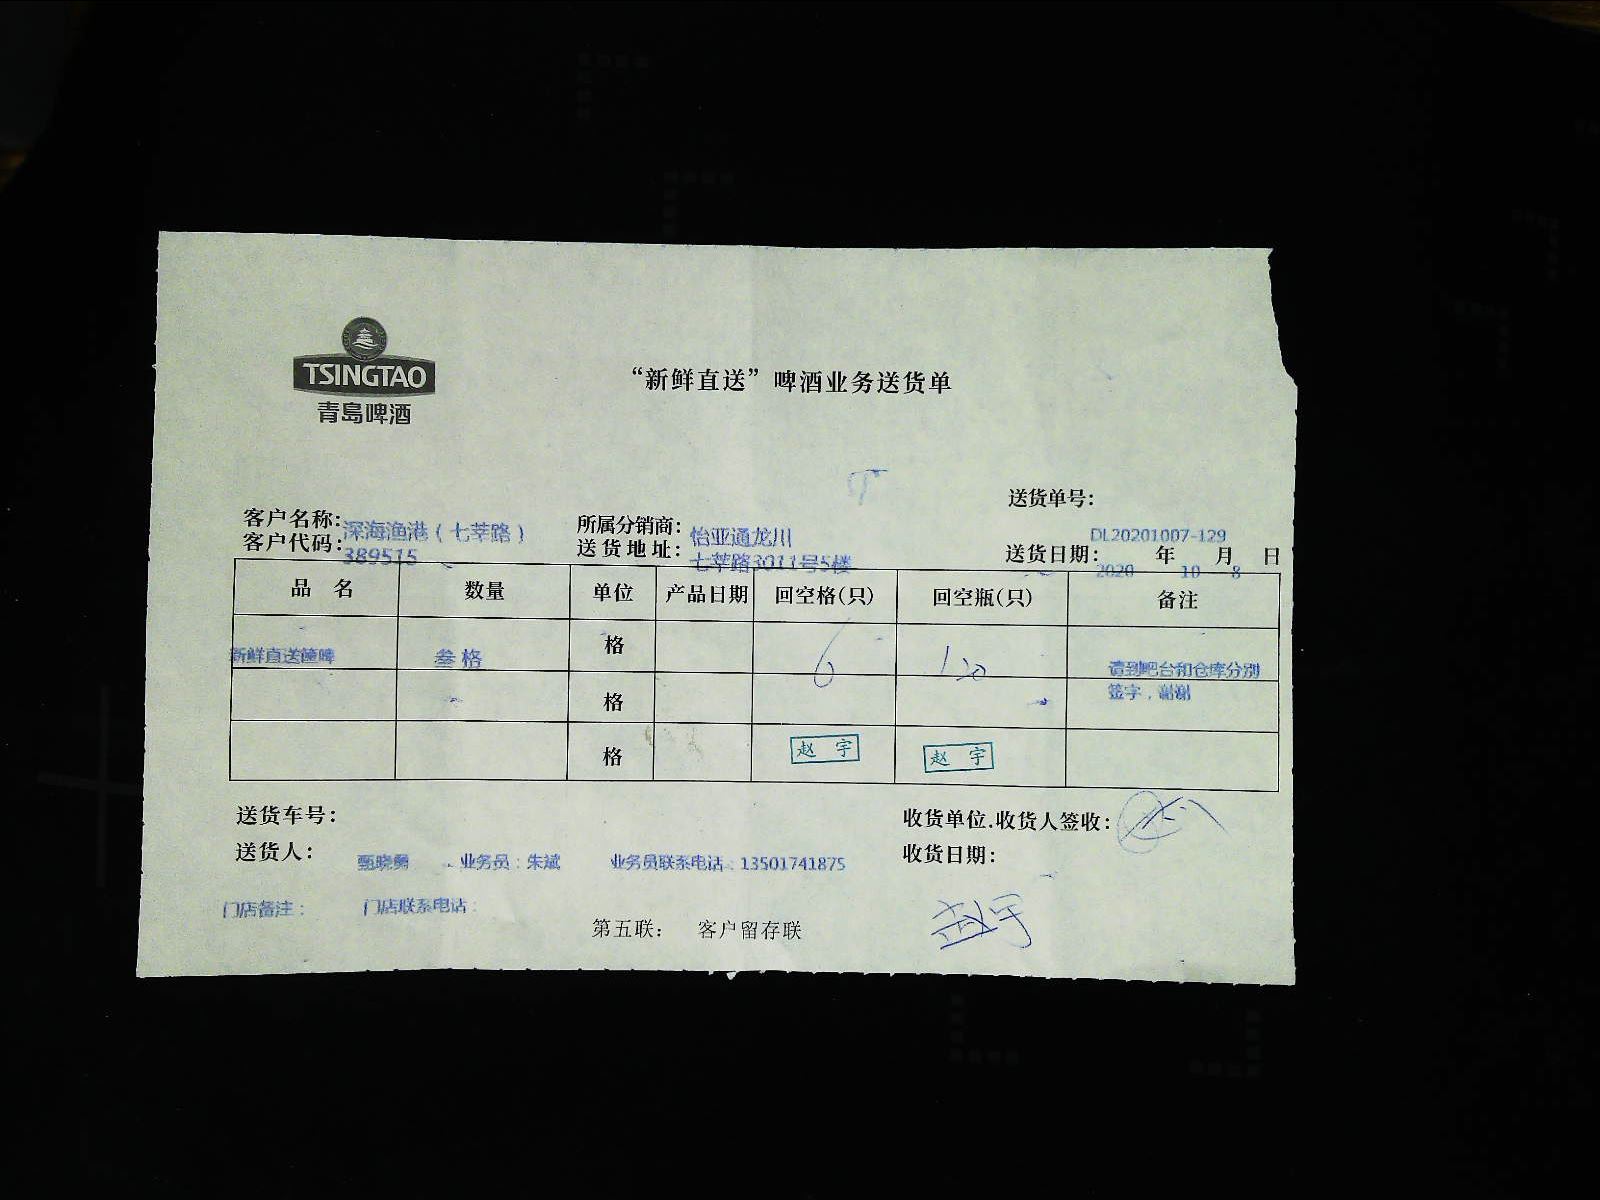 TSINGTAO
青岛啤酒
“新鲜直送”啤酒业务送货单
送货单号：
DL20201007-129
客户名称：深海渔港（七莘路） 所属分销商：怡亚通龙川
客户代码：389515 送货地址：七莘路3011号5楼 送货日期：2020年10月8日
品 名 数量 单位 产品日期 回空格(只) 回空瓶(只) 备注
新鲜直送箱啤 叁格 格 6 120 请到吧台和仓库分别
签字，谢谢
格
格 赵 宇 赵 宇
送货车号： 收货单位.收货人签收：
送货人：甄晓勇 业务员：朱斌 业务员联系电话：13501741875 收货日期：
门店备注： 门店联系电话：
赵宇
第五联： 客户留存联